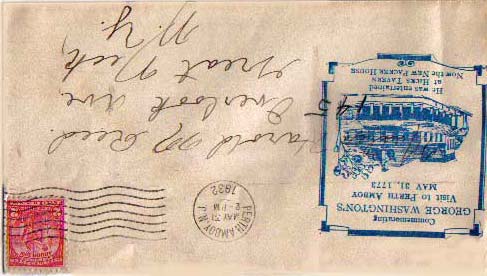 Commemorating
GEORGE WASHINGTON'S
Visit to PERTH AMBOY
MAY 31, 1773
He was entertained
at HICKS TAVERN
Now the NEW PACKER HOUSE
PERTH AMBOY N.J.
MAY 31
2-PM
1932
Harold M Reed
145 Overlook Ave.
Great Neck
N.Y.